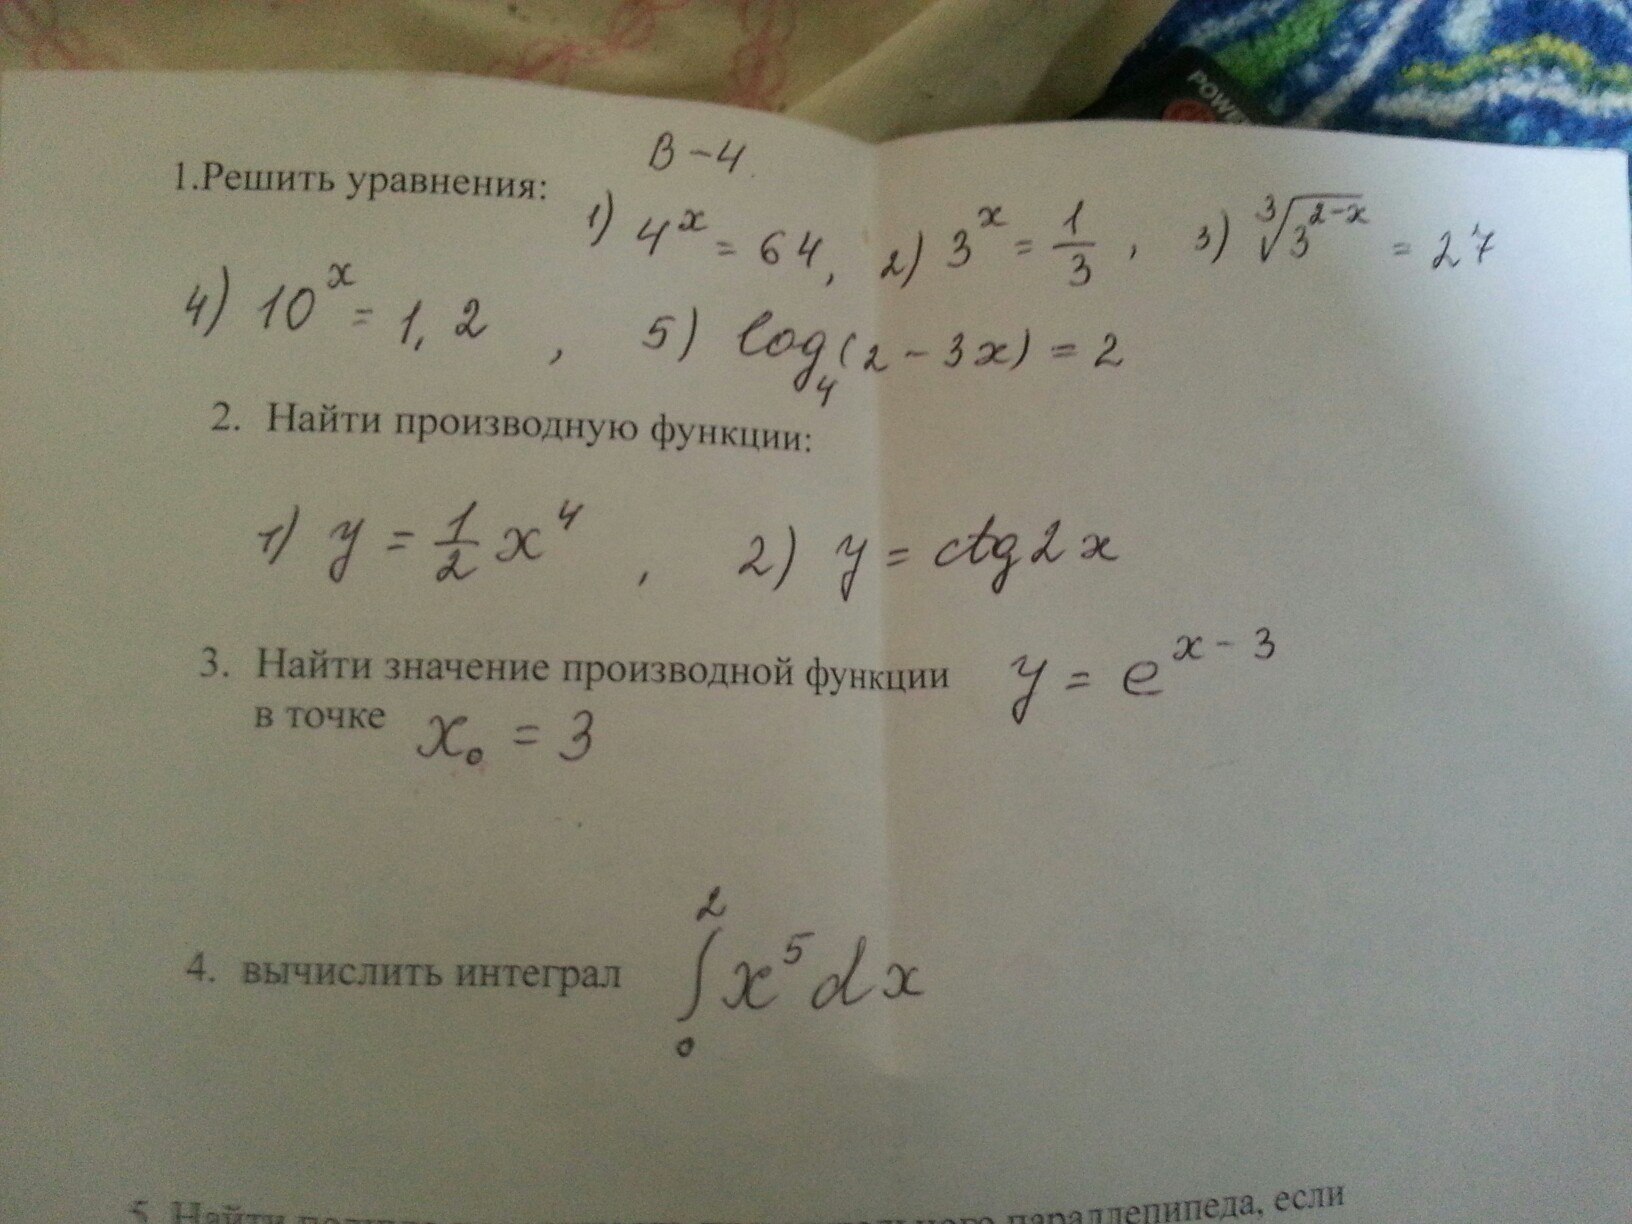 POWE
В-4.
1.Решить уравнения: 1) 4^x = 64, 2) 3^x = 1/3, 3) ∛(3^(2-x)) = 27
4) 10^x = 1,2 , 5) log₄(2-3x) = 2
2. Найти производную функции:
1) y = 1/2 x⁴, 2) y = ctg2x
3. Найти значение производной функции y = e^(x-3)
в точке x₀ = 3
4. вычислить интеграл ∫₀² x⁵dx
5. Найти параллепипеда, если